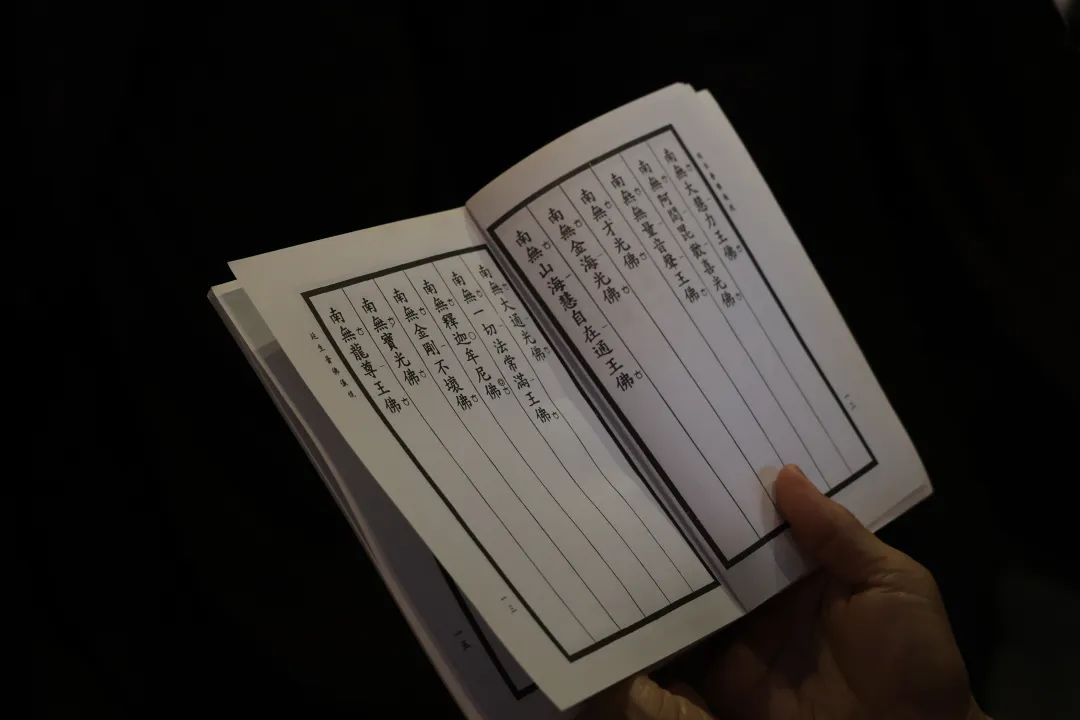 南無大慧力王佛
南無阿閦毘歡喜光佛
南無無量音聲王佛
南無才光佛
南無金海光佛
南無山海慧自在通王佛
一二
南無大通光佛
南無一切法常滿王佛
南無釋迦牟尼佛
南無金剛不壞佛
南無寶光佛
南無龍尊王佛
一三
一五